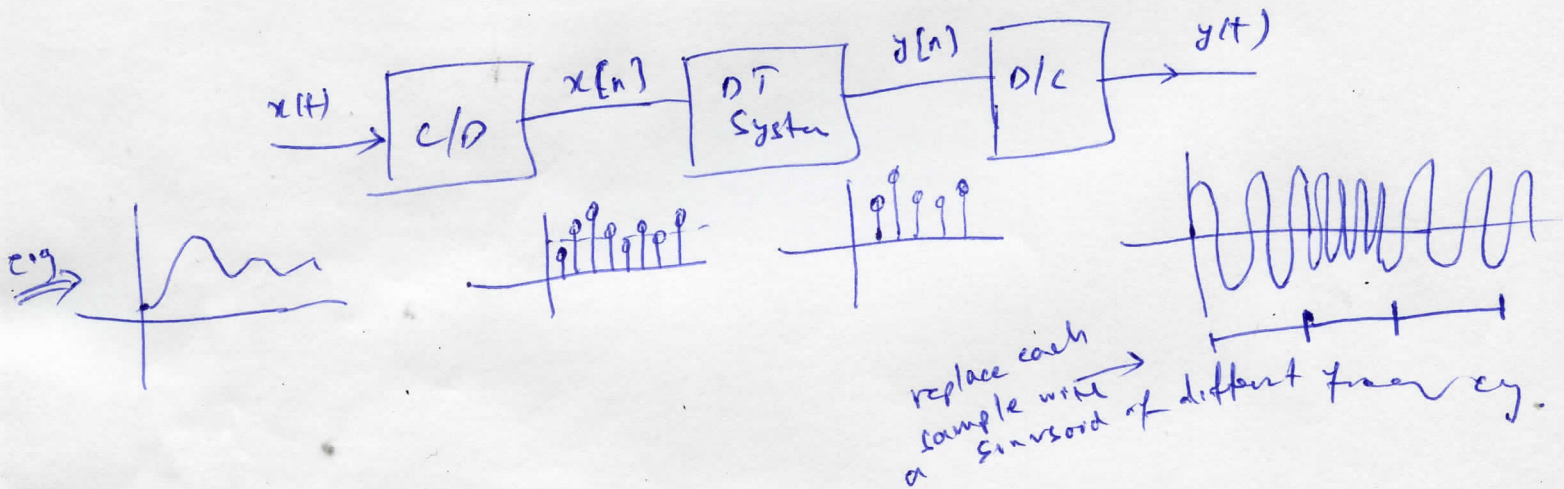 x(t)
C/D
x[n]
DT
System
y[n]
D/C
y(t)
e.g.
replace each
sample with
a sinusoid of different frequency.